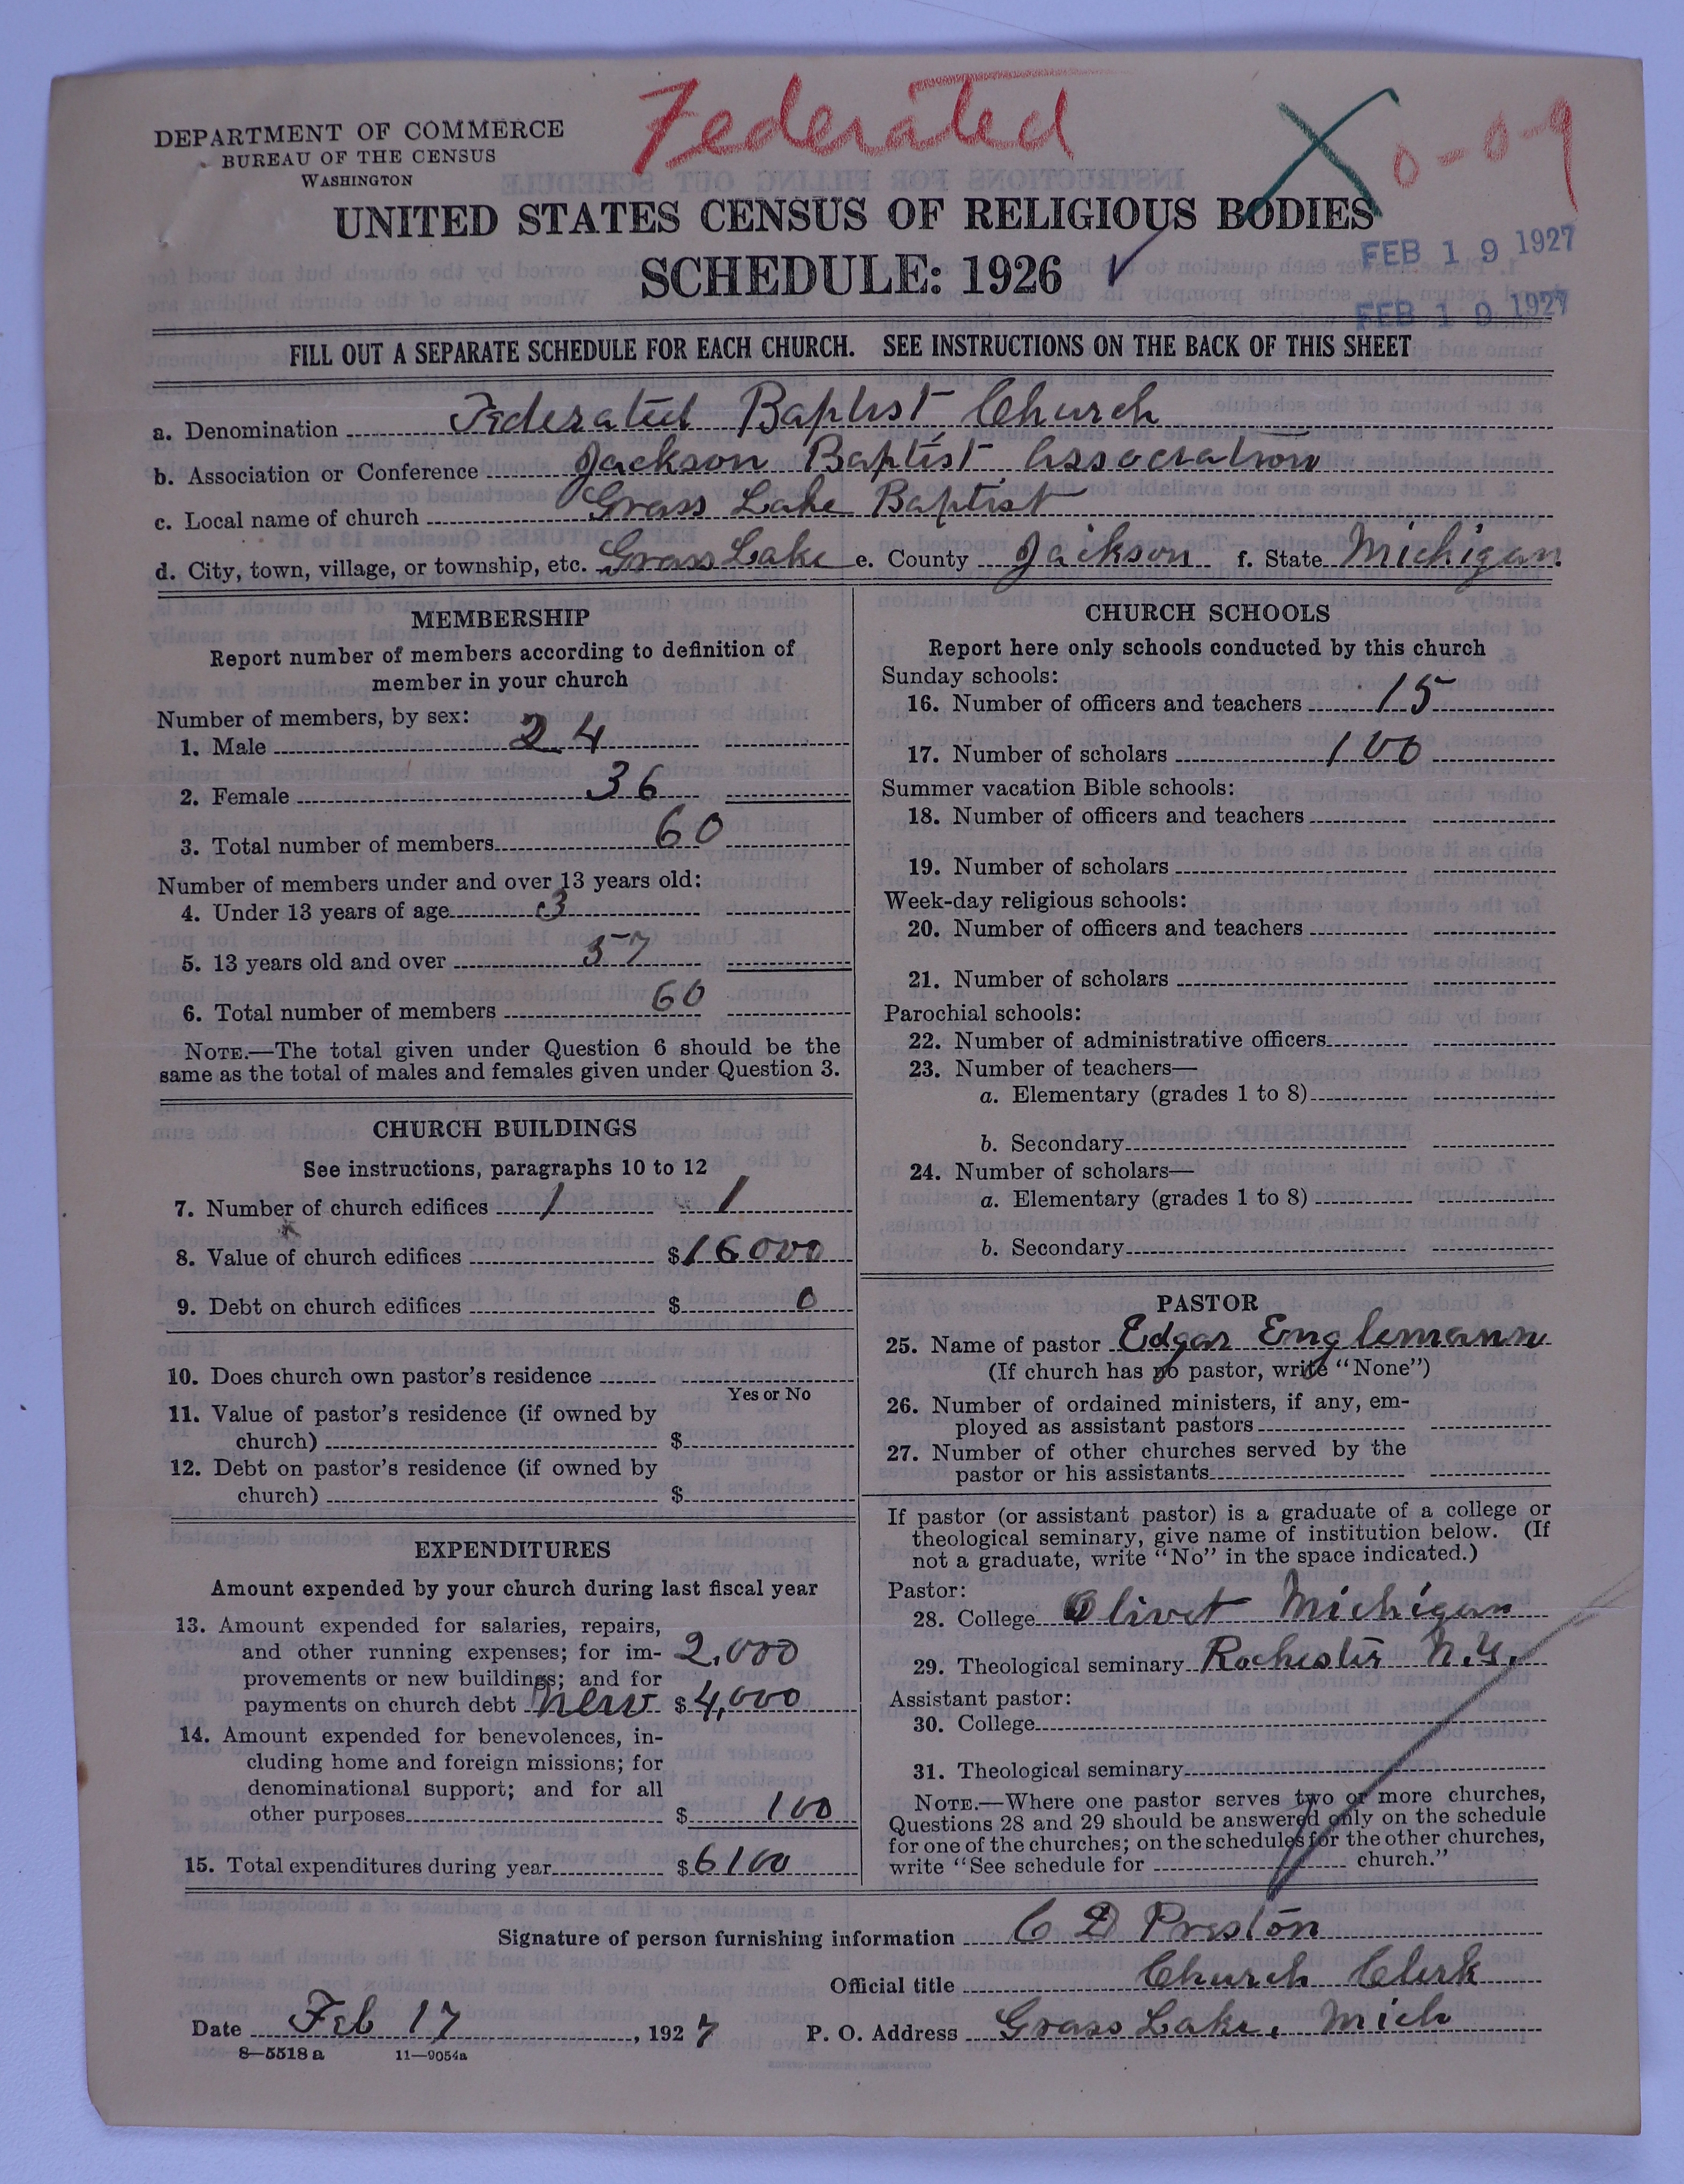 Federated
0-0-9
DEPARTMENT OF COMMERCE
BUREAU OF THE CENSUS
WASHINGTON
UNITED STATES CENSUS OF RELIGIOUS BODIES
SCHEDULE: 1926
FEB 19 1927
FEB 19 1927
FILL OUT A SEPARATE SCHEDULE FOR EACH CHURCH. SEE INSTRUCTIONS ON THE BACK OF THIS SHEET
a. Denomination Federated Baptist Church
b. Association or Conference Jackson Baptist Association
c. Local name of church Grass Lake Baptist
d. City, town, village, or township, etc. Grass Lake e. County Jackson f. State Michigan.
MEMBERSHIP
Report number of members according to definition of
member in your church
Number of members, by sex:
1. Male 24
2. Female 36
3. Total number of members 60
Number of members under and over 13 years old:
4. Under 13 years of age 3
5. 13 years old and over 57
6. Total number of members 60
NOTE.—The total given under Question 6 should be the
same as the total of males and females given under Question 3.
CHURCH BUILDINGS
See instructions, paragraphs 10 to 12
7. Number of church edifices 1 1
8. Value of church edifices $16000
9. Debt on church edifices $ 0
10. Does church own pastor's residence
Yes or No
11. Value of pastor's residence (if owned by
church) $
12. Debt on pastor's residence (if owned by
church) $
EXPENDITURES
Amount expended by your church during last fiscal year
13. Amount expended for salaries, repairs,
and other running expenses; for im- 2,000
provements or new buildings; and for
payments on church debt new $4,000
14. Amount expended for benevolences, in-
cluding home and foreign missions; for
denominational support; and for all
other purposes $ 100
15. Total expenditures during year $6100
CHURCH SCHOOLS
Report here only schools conducted by this church
Sunday schools:
16. Number of officers and teachers 15
17. Number of scholars 100
Summer vacation Bible schools:
18. Number of officers and teachers
19. Number of scholars
Week-day religious schools:
20. Number of officers and teachers
21. Number of scholars
Parochial schools:
22. Number of administrative officers
23. Number of teachers—
a. Elementary (grades 1 to 8)
b. Secondary
24. Number of scholars—
a. Elementary (grades 1 to 8)
b. Secondary
PASTOR
25. Name of pastor Edgar Englemann
(If church has no pastor, write "None")
26. Number of ordained ministers, if any, em-
ployed as assistant pastors
27. Number of other churches served by the
pastor or his assistants
If pastor (or assistant pastor) is a graduate of a college or
theological seminary, give name of institution below. (If
not a graduate, write "No" in the space indicated.)
Pastor:
28. College Olivet Michigan
29. Theological seminary Rochester N.Y.
Assistant pastor:
30. College
31. Theological seminary
NOTE.—Where one pastor serves two or more churches,
Questions 28 and 29 should be answered only on the schedule
for one of the churches; on the schedules for the other churches,
write "See schedule for church."
Signature of person furnishing information C D Preston
Official title Church Clerk
Date Feb 17, 1927 P. O. Address Grass Lake, Mich
8—5518 a 11—9054a